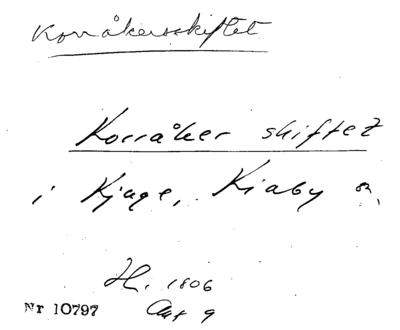 Korråkersskiftet
Korråker skiftet
i Kjuge, Kiaby sn,
H. 1806
Nr 10797 Akt 9